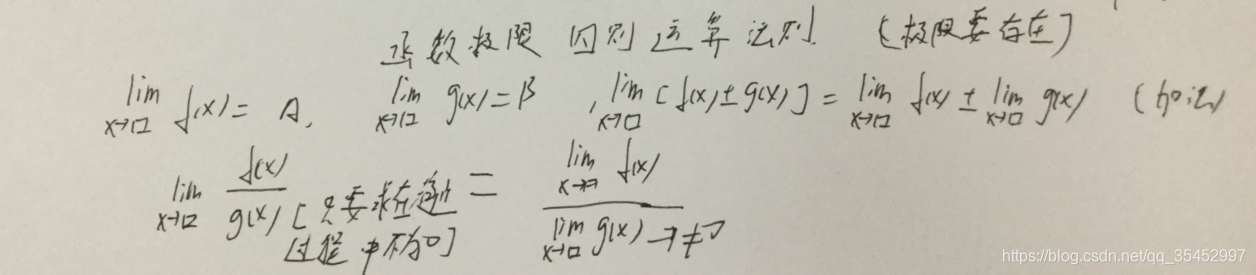 函数极限 四则运算法则. (极限要存在)
lim x→□ f(x) = A, lim x→□ g(x) = B, lim x→□ [f(x) ± g(x)] = lim x→□ f(x) ± lim x→□ g(x) (加法)
lim x→□ f(x)/g(x) [只要求在趋近过程中不为0] = lim x→□ f(x) / lim x→□ g(x) → ≠0
https://blog.csdn.net/qq_35452997